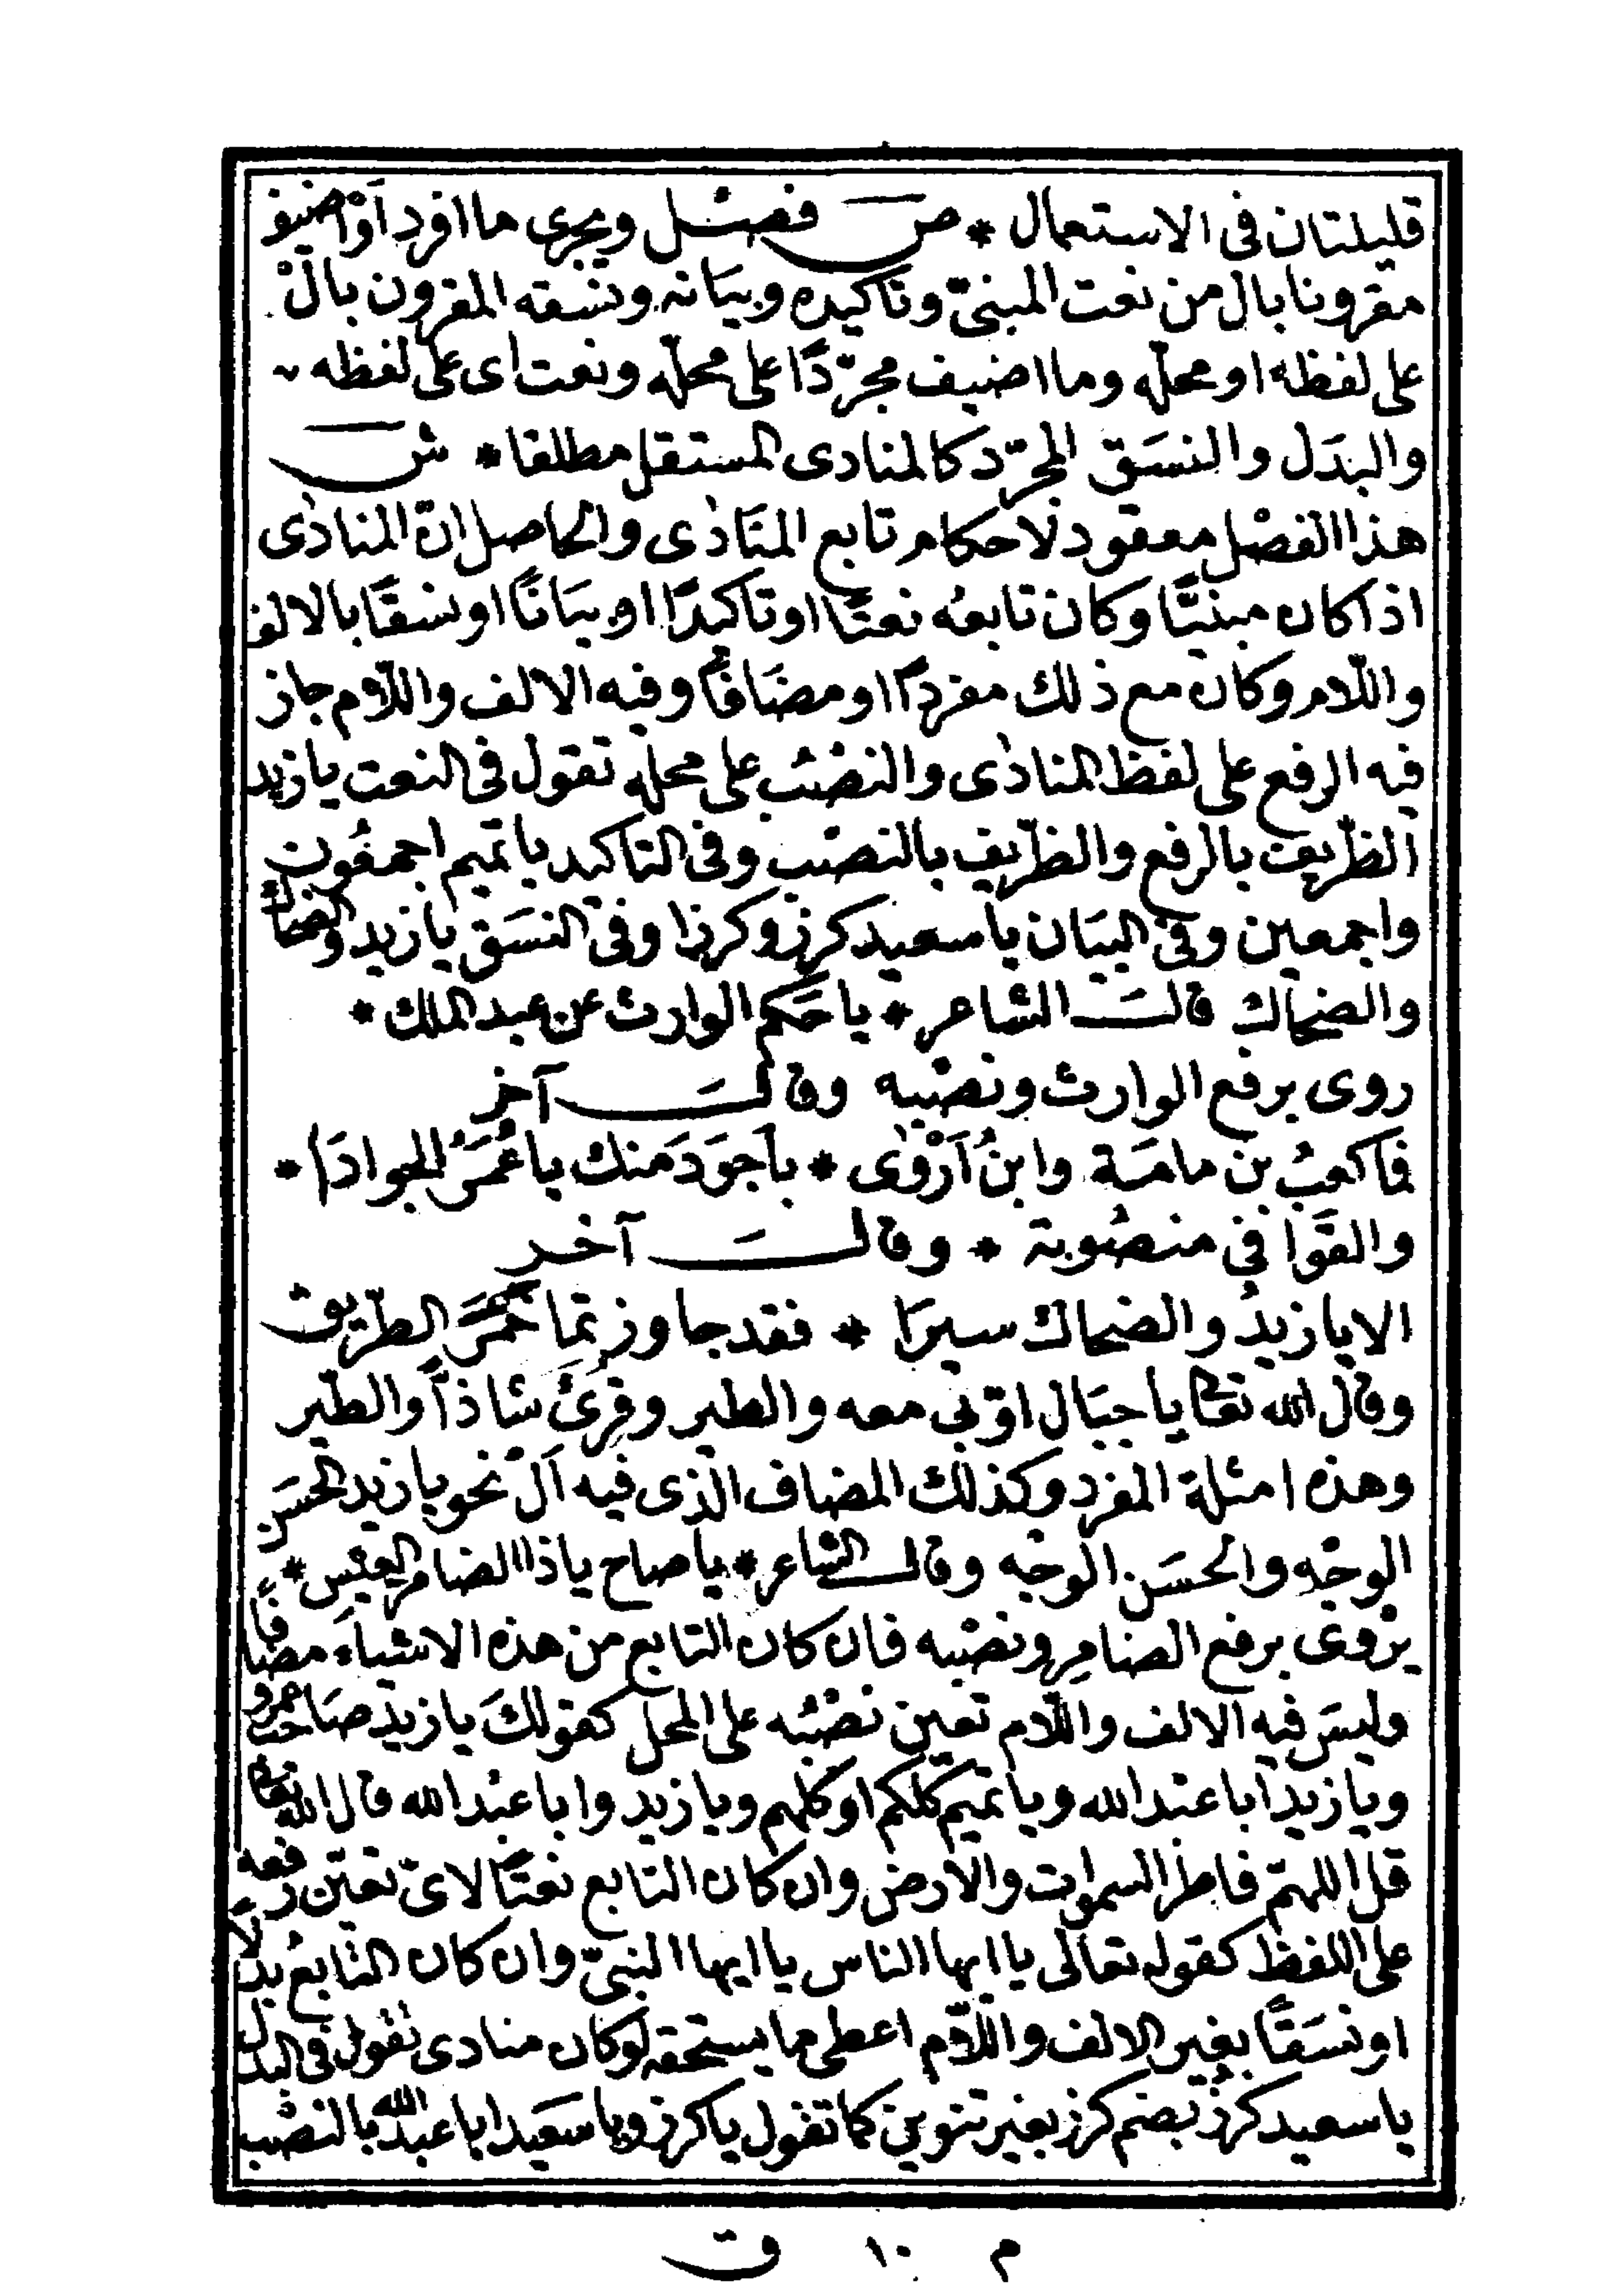 قليلتان فى الاستعمال * ص فصل ويجرى ما افرد اَوْ اضيف
مقرونا بال من نعت المبنىّ وتاكيده وبيَانه ونسقه المقرون بالْ
على لفظه او محلّه وما اضيف مجرّدًا على محلّه ونعت اى على لفظه
والبدَل والنسَق المجرّد كالمنادى المستقل مطلقا * ش
هذا الفصْل معقود لاحكام تابع المنَادٰى والحاصل انّ المنادٰى
اذا كان مبنيًّا وكان تابعُه نعتًا او تاكيدًا او بيَانًا او نسقًا بالالف
واللّام وكان مع ذلك مفردًا او مضَافًا وفيه الالف واللّام جاز
فيه الرفع على لفظ المنادٰى والنصْب على محلّه تقول فى النعت يا زيد
الظّريف بالرفع والظّريف بالنصْب وفى التاكيد يا تميم اجمعُون
واجمعين وفى البيَان يا سعيد كرز وكرزا وفى النسَق يا زيد والضحاك
والضحاك قالَ الشاعر * يا حَكم الوارث عن عبد الملك *
روى برفع الوارث ونصْبه وقالَ آخر
فما كعبُ بن مامَة وابنُ اَرْوٰى * باَجوَدَ منك يا عُمَرُ الجوادَا *
والقَوافى منصُوبة * وقالَ آخر
الا يا زيدُ والضحاك سيرَا * فقد جاوزتما خمَرَ الطّريق
وقال الله تعالى يا جبَال اوّبى معه والطير وقرِئَ شاذًّا والطّير
وهذه امثلة المفرد وكذلك المضاف الّذى فيه اَلْ نحو يا زيد الحسَن
الوجْه والحسَن الوجْه وقال الشاعر * يا صاح يا ذا الضامر العيْس *
يرْوى برفع الضامِر ونصْبه فان كان التابع من هذه الاشياَء مضافًا
وليسَ فيه الالف واللّام تعين نصْبُه على المحل كقولكَ يا زيد صَاحب عمرو
ويا زيد ابا عبْد الله ويا تميم كلكم او كلهم ويا زيد وابا عبْد الله قال الله تعالى
قل اللهمّ فاطر السموات والارض وان كان التابع نعتًا لاىّ تعيّن رفعه
على اللفظ كقوله تعالى يا ايها الناس يا ايها النبىّ وان كان التابع بدلًا
او نسَقًا بغير الالف واللّام اعطى ما يستحقه لو كان منادى تقول فى البدل
يا سعيد كرز بضم كرز بغير تنوين كما تقول يا كرز ويا سَعيد ابا عبد الله بالنصْب
م ١٠ ق